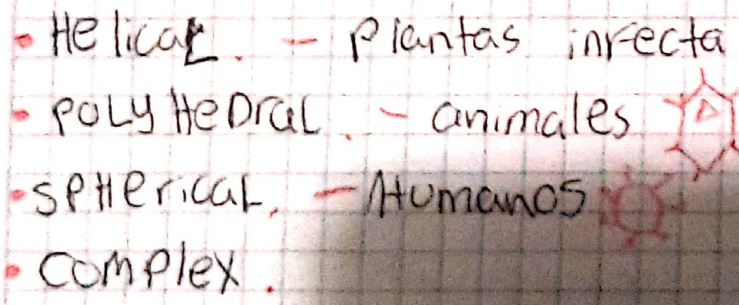 • Helical. - Plantas infecta
• POLYHeDral. - animales
• SPHerical. - Humanos
• complex.